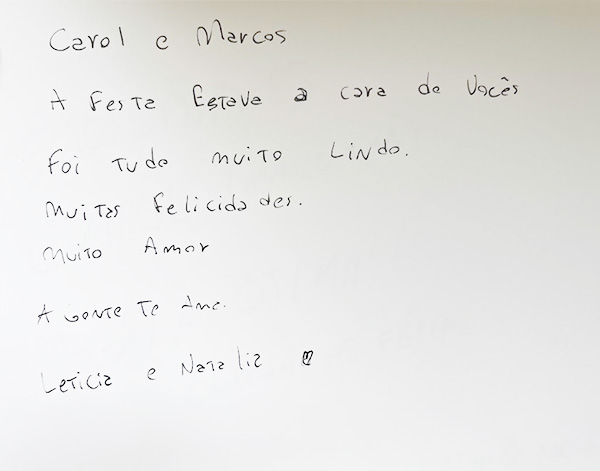 Carol e Marcos
A Festa Estava a cara de Vocês
Foi Tudo muito Lindo.
Muitas Felicidades.
Muito Amor
A Gente Te Ama.
Leticia e Natalia ♡